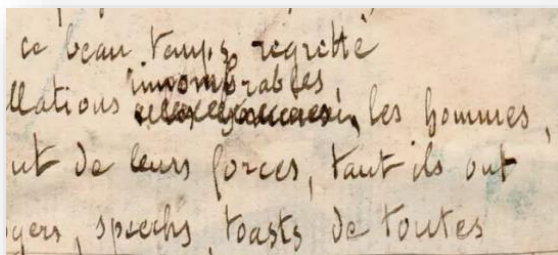 ce beau temps regretté
innombrables,
llations les hommes,
ut de leurs forces, tant ils ont
gers, speechs, toasts de toutes